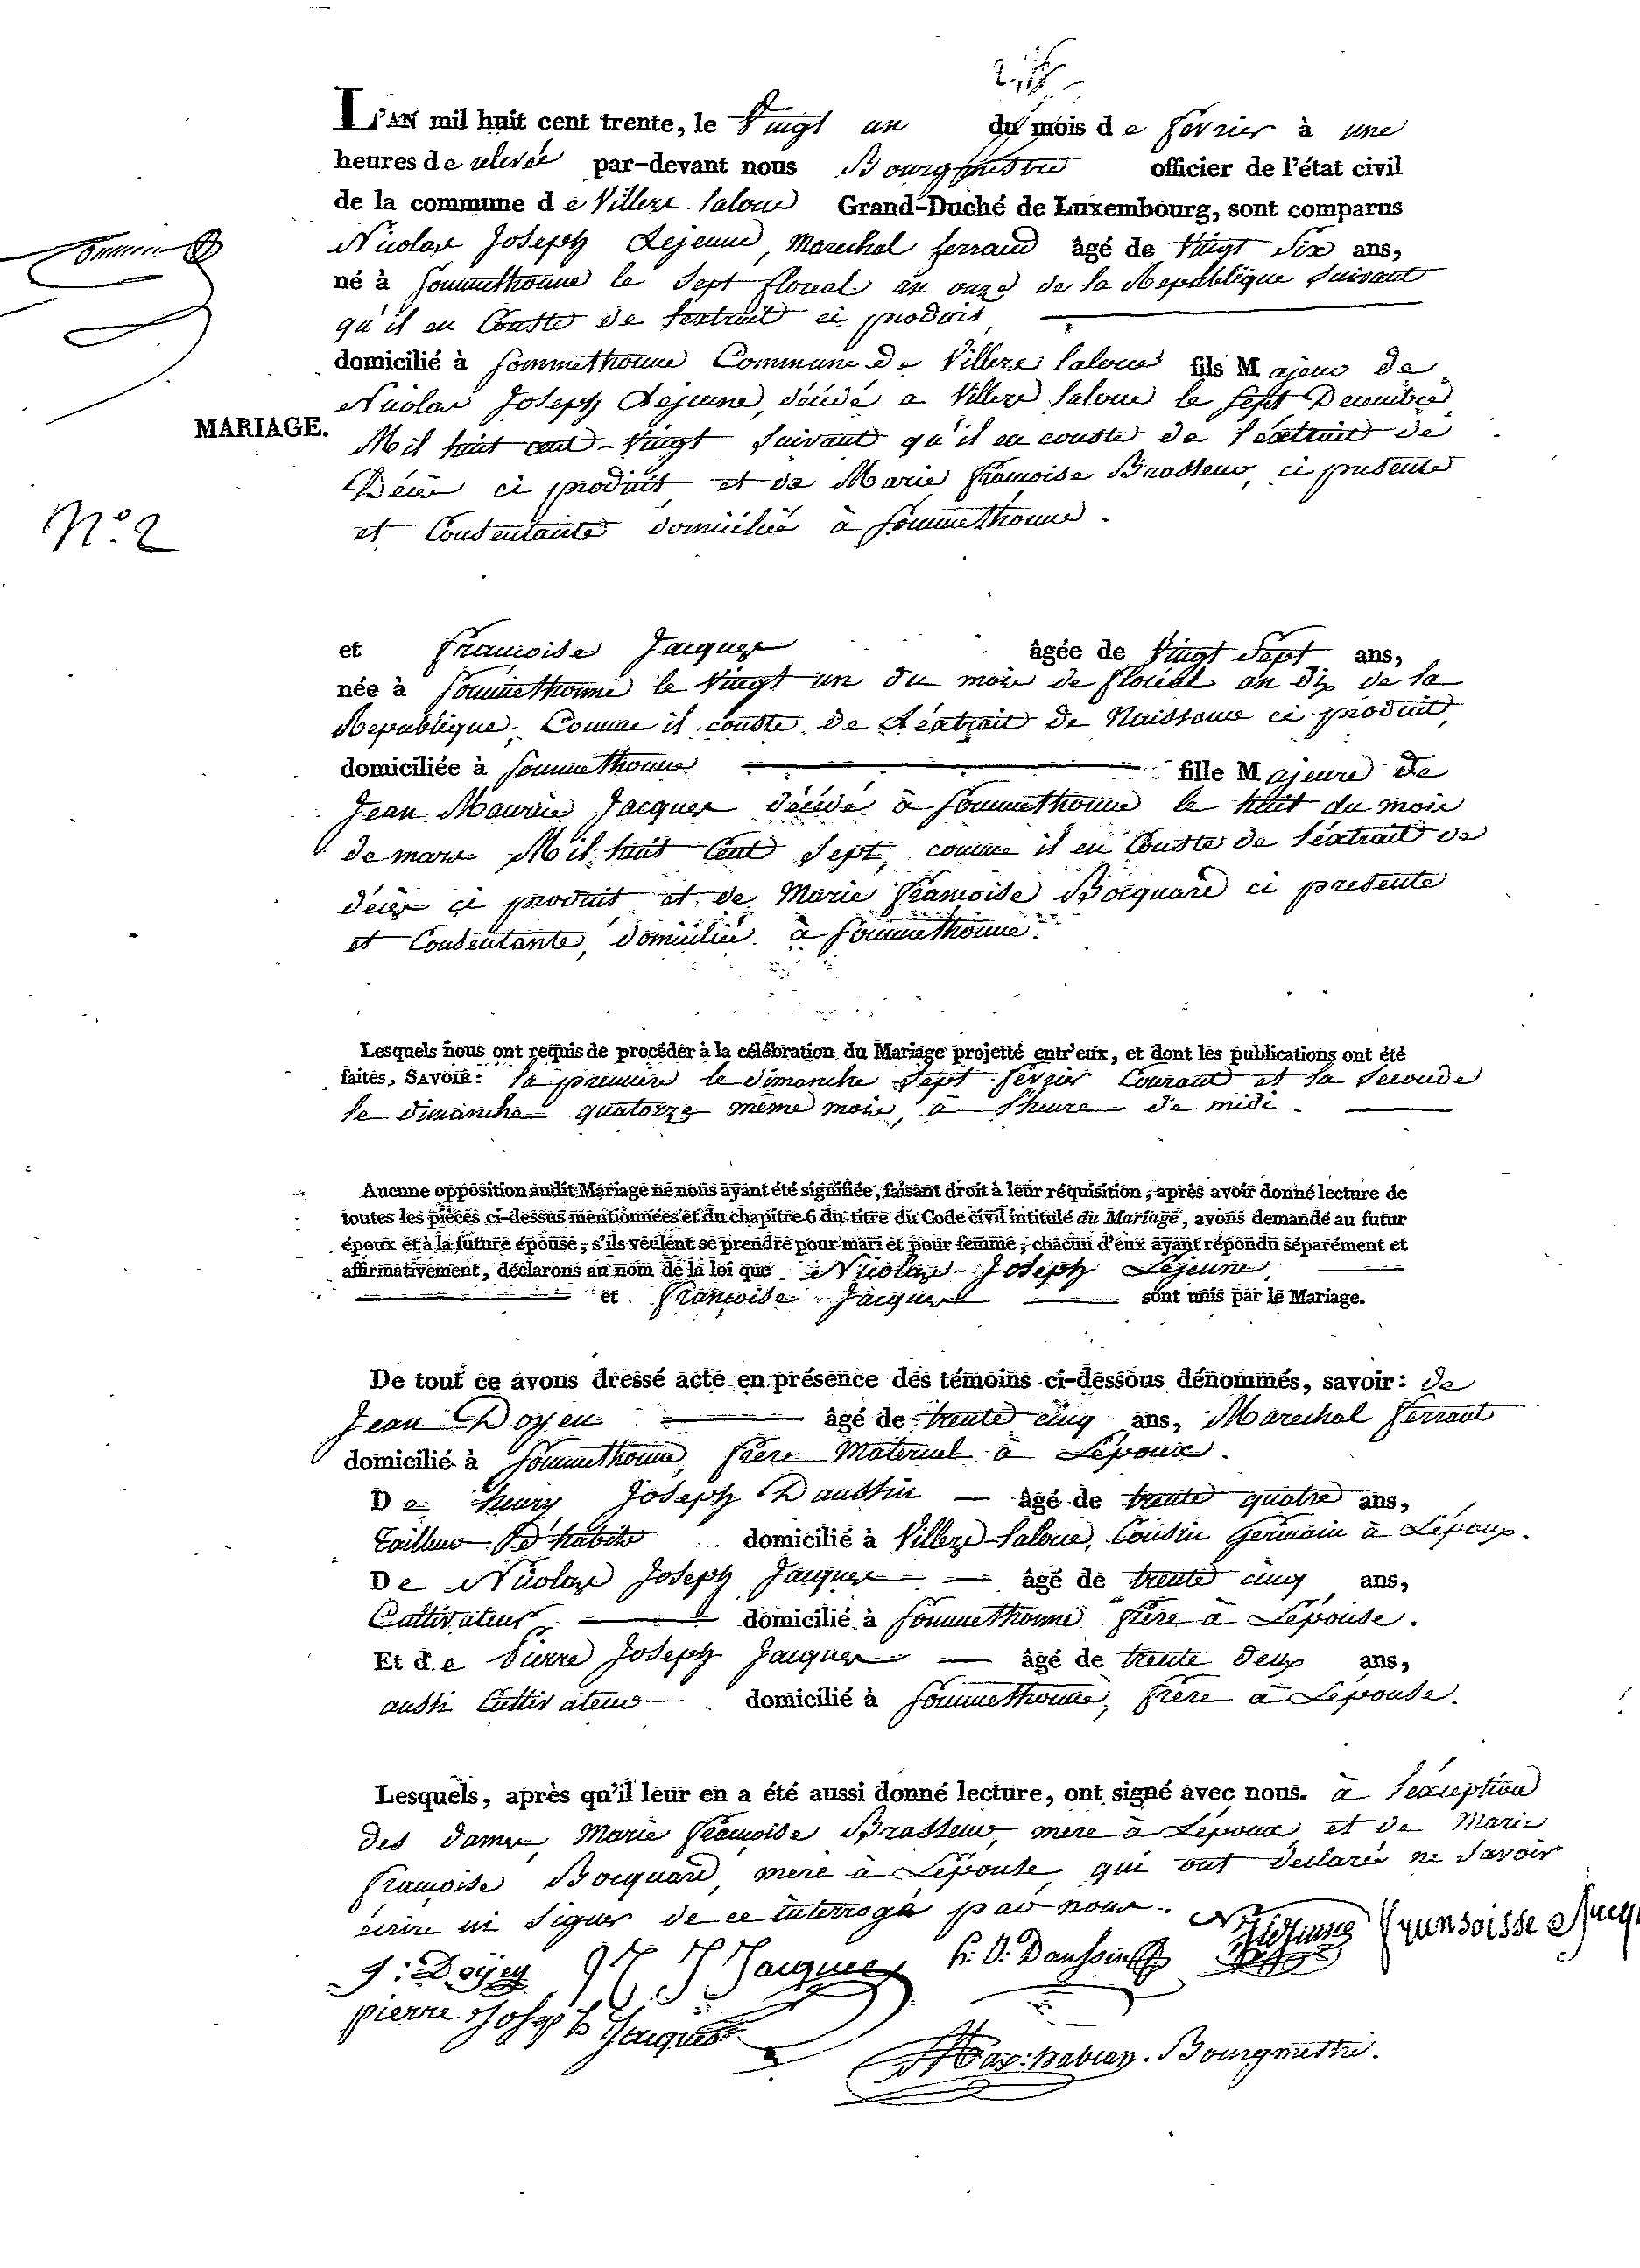 L'AN mil huit cent trente, le Vingt un du mois de fevrier à une
heures de relevée par-devant nous Bourgmestre officier de l'état civil
de la commune de Villerz Laloue Grand-Duché de Luxembourg, sont comparus
Nicolas Joseph Lejeune, Marechal ferrand âgé de Vingt Six ans,
né à Sommethonne le Sept floreal an onze de la Republique Suivant
qu'il en Conste de lextrait ci produit,
domicilié à Sommethonne Commune de Villers Laloue fils Majeur de
Nicolas Joseph Lejeune, décédé a Villers Laloue le Sept Decembre
MARIAGE.
Mil huit cent Vingt Suivant qu'il en conste de l'éxtrait de
Décès ci produit et de Marie françoise Brasseur, ci presente
N.º 2
et Consentante domiciliée à Sommethonne.
et françoise Jacques âgée de Vingt Sept ans,
née à Sommethonne le Vingt un du mois de floreal an dix de la
Republique, Comme il conste de L'éxtrait de Naissance ci produit,
domiciliée à Sommethonne fille Majeure de
Jean Maurice Jacques décédé à Sommethonne le huit du mois
de mars Mil huit Cent Sept, comme il en Conste de l'éxtrait de
décès ci produit et de Marie françoise Bocquard ci presente
et Consentante, domiciliée à Sommethonne.
Lesquels nous ont requis de procéder à la célébration du Mariage projetté entr'eux, et dont les publications ont été
faites, SAVOIR: la premiere le dimanche Sept fevrier Courant et la Seconde
le dimanche quatorze même mois, à l'heure de midi.
Aucune opposition audit Mariage ne nous ayant été signifiée, faisant droit à leur réquisition, après avoir donné lecture de
toutes les pièces ci-dessus mentionnées et du chapitre 6 du titre du Code civil intitulé du Mariage, avons demandé au futur
époux et à la future épouse, s'ils veulent se prendre pour mari et pour femme, chacun d'eux ayant répondu séparément et
affirmativement, déclarons au nom de la loi que Nicolas Joseph Lejeune,
et françoise Jacques sont unis par le Mariage.
De tout ce avons dressé acte en présence des témoins ci-dessous dénommés, savoir: de
Jean Doyen âgé de trente cinq ans, Marechal ferrant
domicilié à Sommethonne, frere Maternel à Lépoux.
De henry Joseph Daussin âgé de trente quatre ans,
Tailleur d'habits domicilié à Villerz Laloue, Cousin Germain à Lépoux.
De Nicolas Joseph Jacques âgé de trente cinq ans,
Cultivateur domicilié à Sommethonne frere à Lépouse.
Et de Pierre Joseph Jacques âgé de trente deux ans,
aussi Cultivateur domicilié à Sommethonne, frere à Lépouse.
Lesquels, après qu'il leur en a été aussi donné lecture, ont signé avec nous. à l'éxception
des dames, Marie françoise Brasseur, mere à Lépoux, et de Marie
françoise Bocquard, mere à Lépouse, qui ont declarés ne Savoir
écrire ni Signer de ce interrogé par nous.
J: Doyen N J Jacques h. J. Daussin NJ Lejeune fransoisse Jacq
pierre Joseph Jacques
Bourgmestre.